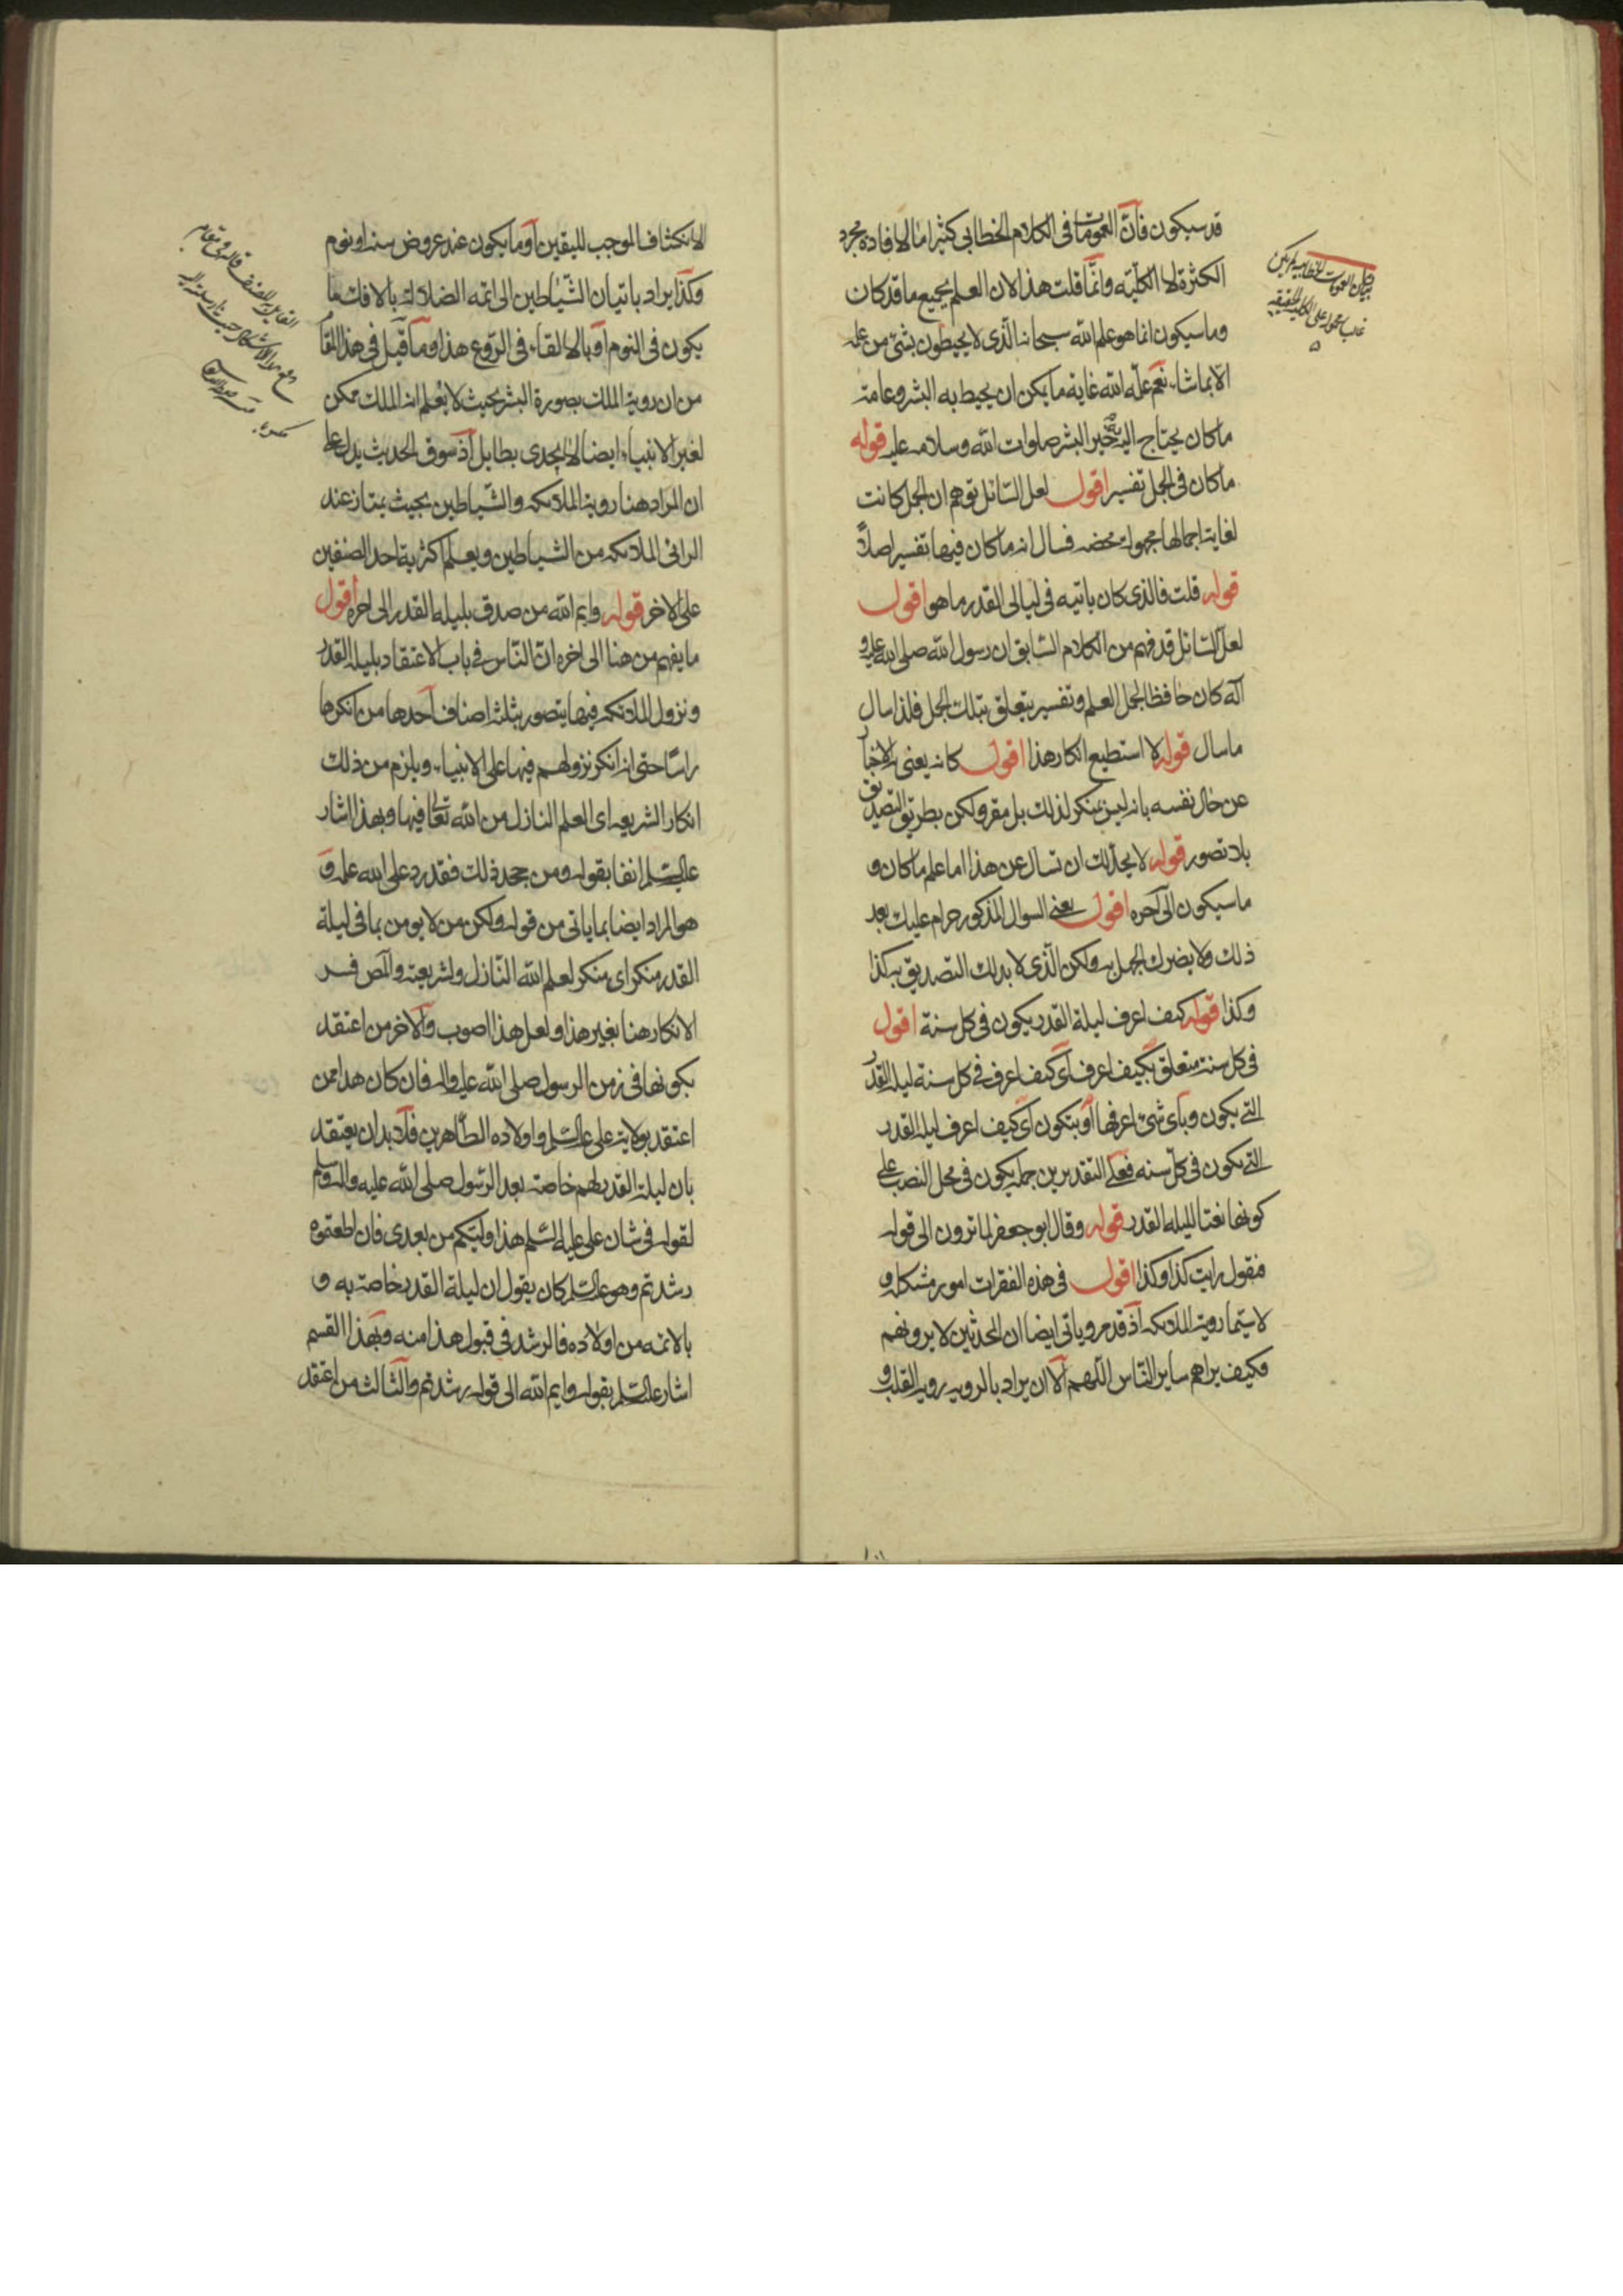 قد سيكون فانّ العمومات فى الكلام الخطابى كثيرا ما لافاده مجرد
الكثرة لا الكلّية وانّما قلت هذا لان العلم بجميع ما قد كان
وما سيكون انما هو علم الله سبحانه الّذى لا يحيطون بشئ من علمه
الا بما شاء نعم علّمه الله غاية ما يمكن ان يحيط به البشر وعامة
ماكان يحتاج اليه خير البشر صلوات الله وسلامه عليه قوله
ماكان فى الجمل تفسير اقول لعل السّائل توهم ان الجمل كانت
لغاية اجمالها مجهولة محضه فسال انه ماكان فيها تفسير اصلاً
قوله قلت فالذى كان ياتيه فى ليالى القدر ما هو اقول
لعل السّائل قد فهم من الكلام السّابق ان رسول الله صلى الله عليه و
آله كان حافظا لجمل العلم وتفسير يتعلق بتلك الجمل فلذا سال
ما سال قوله لا استطيع انكار هذا اقول كانه يعنى الاخبار
عن حال نفسه بانه ليس بمنكر لذلك بل مقر ولكن بطريق التصديق
بلا تصور قوله لا يحلّ لك ان تسال عن هذا اما علم ما كان و
ما سيكون الى آخره اقول يعنى السوال المذكور حرام عليك بعد
ذلك ولا يضرك الجهل به ولكن الّذى لا بد لك التصديق به كذا
وكذا قوله كيف اعرف ليلة القدر يكون فى كل سنة اقول
فى كل سنة متعلق بكيف اعرف اى كيف اعرف فى كل سنة ليلة القدر
التى يكون وباى شئ اعرفها او بتكون اى كيف اعرف ليلة القدر
التى يكون فى كلّ سنه فعلى التقديرين جملة يكون فى محل النصب على
كونها نعتا لليلة القدر قوله وقال ابو جعفر لما ترون الى قوله
فنقول رايت كذا وكذا اقول فى هذه الفقرات امور مشكلة و
لا سيّما روية الملائكه اذ قد مر وياتى ايضا ان المحدثين لا يرونهم
فكيف يراهم ساير النّاس اللّهم الّا ان يراد بالرويه روية القلب و
الانكشاف الموجب لليقين او ما يكون عند عروض سنه او نوم
وكذا يراد باتيان الشّياطين الى ائمه الضلالة بالافك ما
يكون فى النوم او بالالقاء فى الرّوع هذا وما قيل فى هذا المقام
من ان روية الملك بصورة البشر بحيث لا يُعلم انه الملك ممكن
لغير الانبياء ايضا لا يجدى بطايل اذ سوق الحديث يدل على
ان المراد هنا روية الملائكه والشّياطين بحيث يمتاز عند
الرائى الملائكه من الشياطين ويعلم اكثرية احد الصنفين
على الاخر قوله وايم الله من صدق بليله القدر الى اخره اقول
ما يفهم من هنا الى اخره انّ النّاس فى باب الاعتقاد بليلة القدر
ونزول الملائكه فيها يتصور بثلثة اصناف احدها من انكرها
راسًا حتى انه انكر نزولهم فيها على الانبياء ويلزم من ذلك
انكار الشريعه اى العلم النازل من الله تعالى فيها وبهذا اشار
عليه السلم انفا بقوله ومن جحد ذلك فقد رد على الله علمه و
هو المراد ايضا بما ياتى من قوله ولكن من لا يومن بما فى ليلة
القدر منكر اى منكر لعلم الله النّازل ولشريعته
الانكار هنا بغير هذا ولعل هذا اصوب والاخر من اعتقد
بكونها فى زمن الرسول صلى الله عليه واله فان كان هذا ممن
اعتقد بولاية على عليه السّلم واولاده الطّاهرين فلا بد ان يعتقد
بان ليلة القدر لهم خاصة بعد الرّسول صلى الله عليه واله وسلم
لقوله فى شان على عليه السّلم هذا وليّكم من بعدى فان اطعتموه
رشدتم وهو عليه السّلم كان يقول ان ليلة القدر خاصة به و
بالائمه من اولاده فالرشد فى قبول هذا منه وبهذا القسم
اشار عليه السّلم بقوله وايم الله الى قوله رشدتم والثّالث من اعتقد